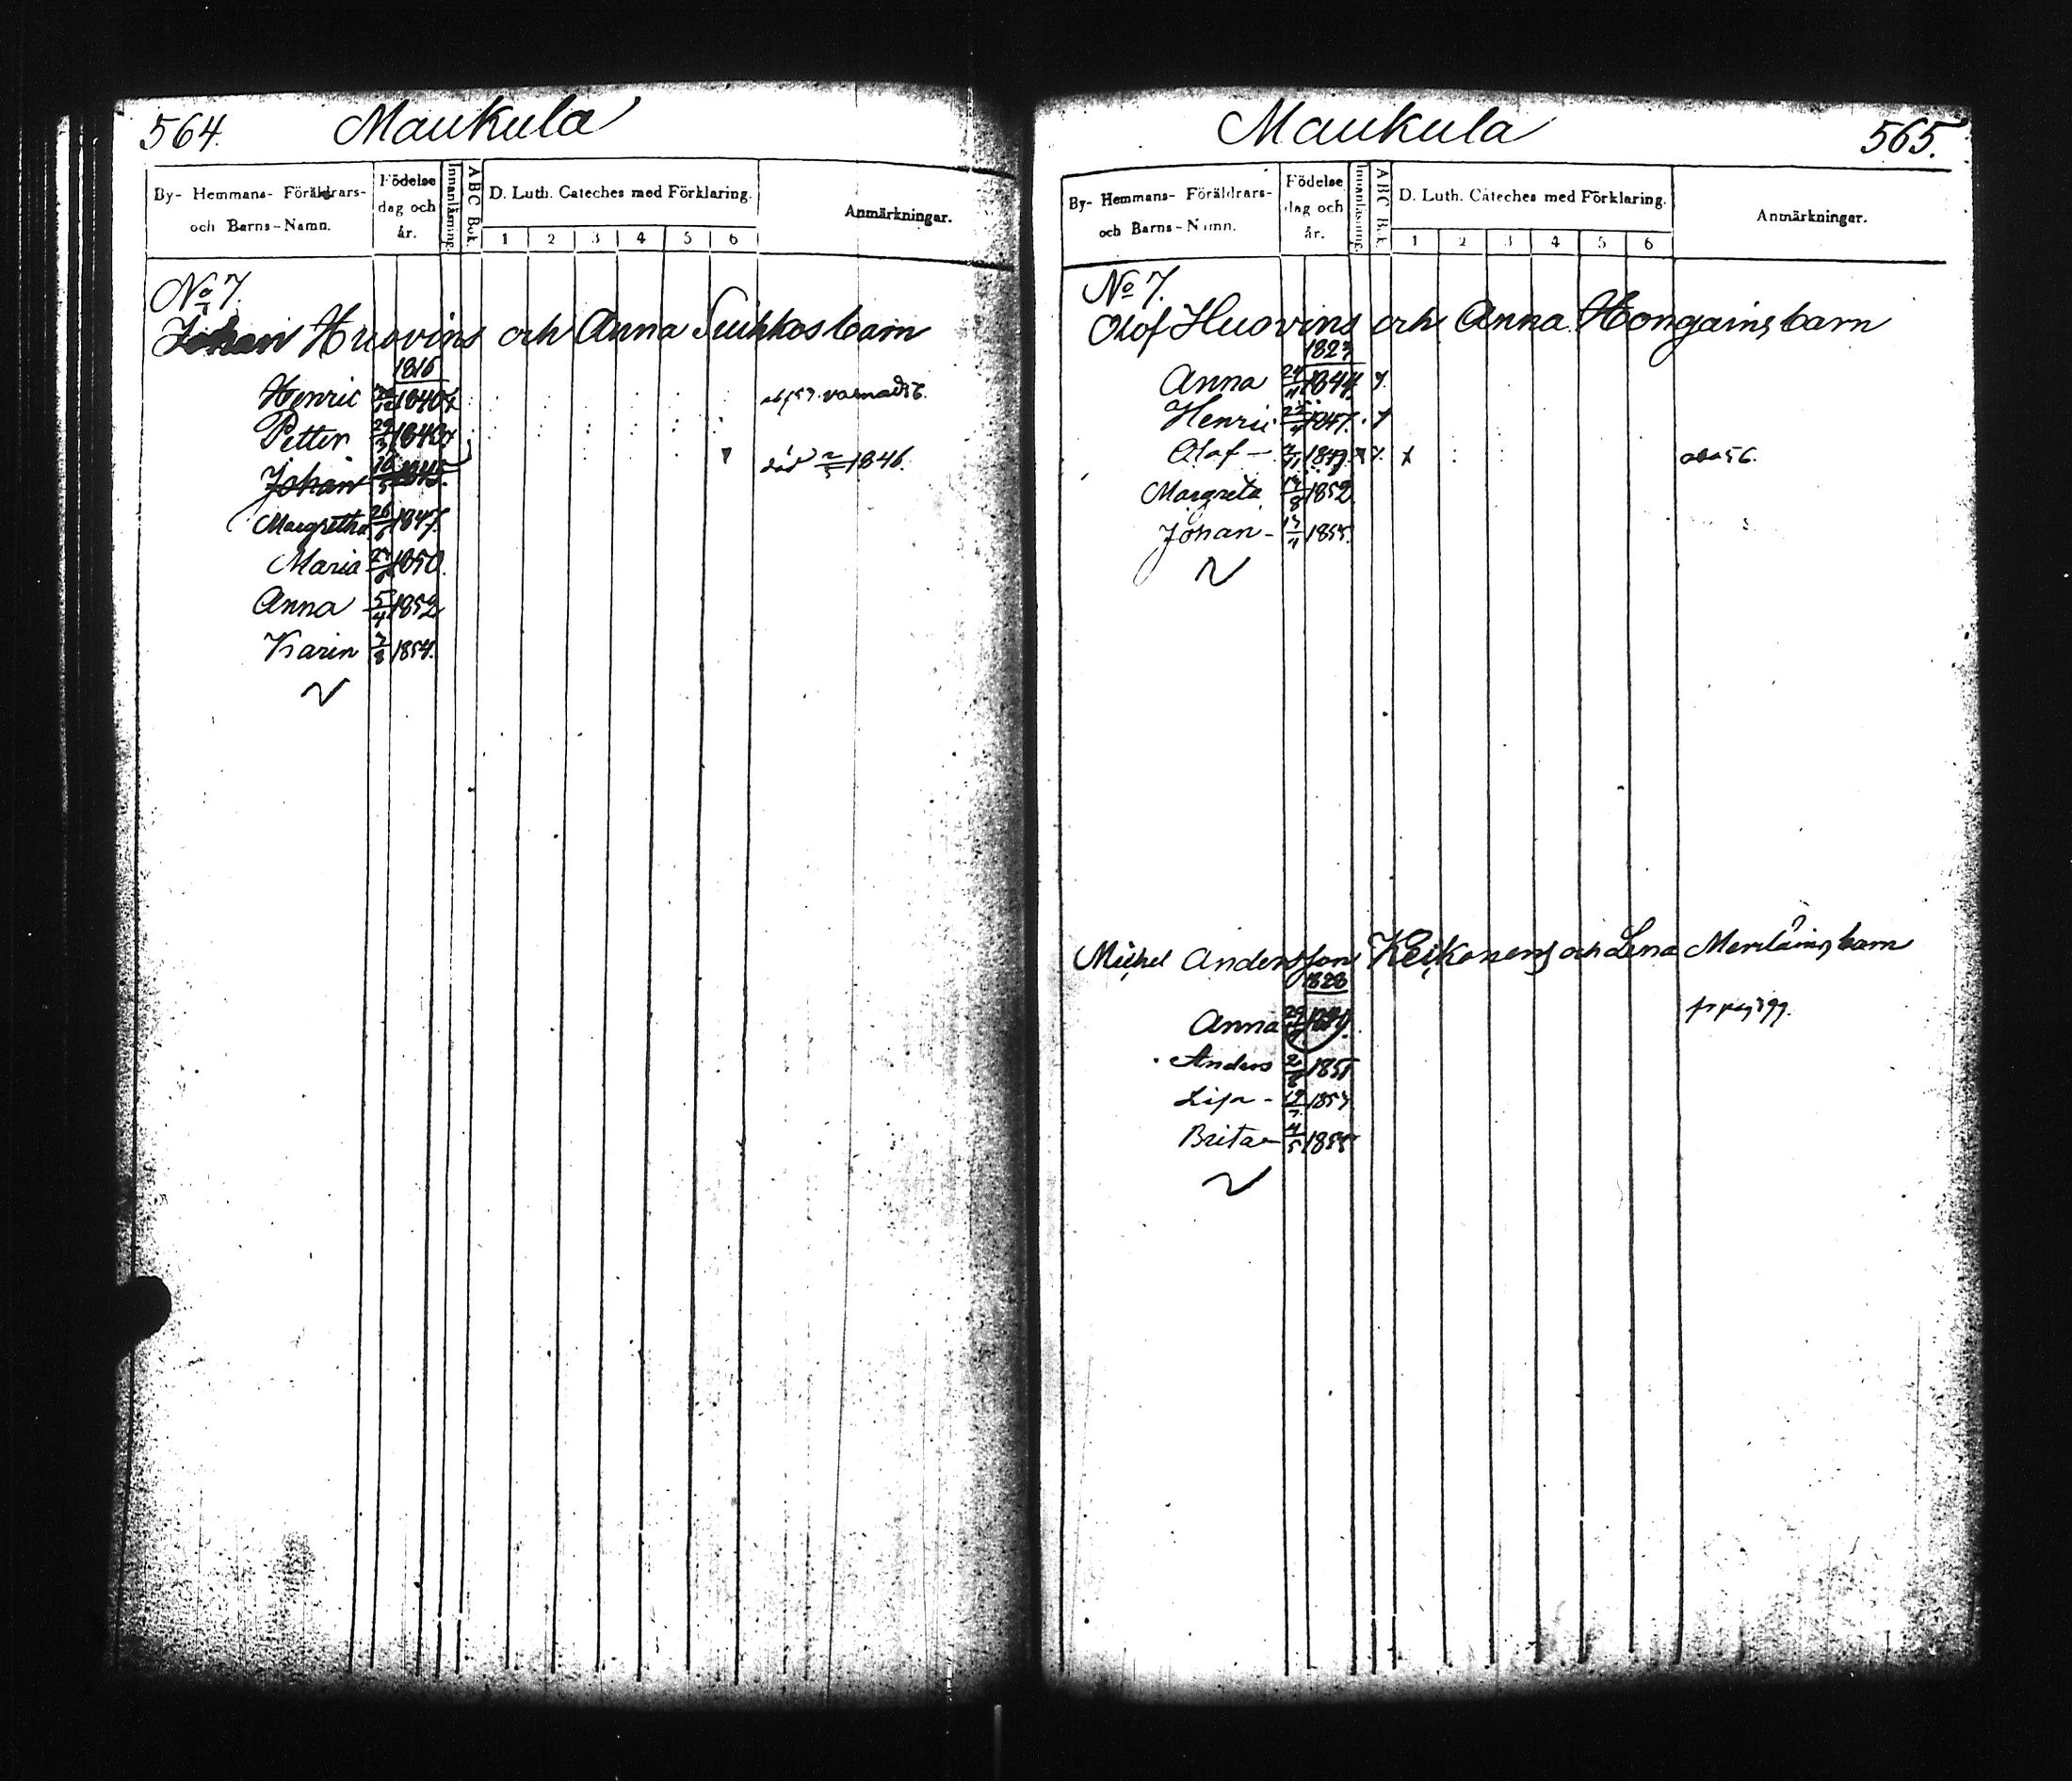 564. Maukula
By- Hemmans- Föräldrars-
och Barns-Namn.
Födelse
dag och
år.
Innanläsning.
ABC Bok.
D. Luth. Cateches med Förklaring.
1 2 3 4 5 6
Anmärkningar.
No 7.
Johan Huovins och Anna Suikkos barn
1816
Henric 1840
Petter 29/3 1843
Johan 1845. död 2/5 1846.
Margretha 26/6 1847.
Maria 1850.
Anna 5/4 1852
Karin 7/8 1854.
Maukula 565.
By- Hemmans- Föräldrars-
och Barns-Namn.
Födelse
dag och
år.
Innanläsning.
ABC Bok.
D. Luth. Cateches med Förklaring.
1 2 3 4 5 6
Anmärkningar.
No 7.
Olof Huovins och Anna Hongains barn
1823
Anna 24/11 1844
Henric 1847.
Olof - 1849.
Margreta 1852
Johan - 1855.
Michel Andersson Keikonens och Lena Meriläins barn
1828
Anna
Anders 2/8 1851
Lisa - 1853
Brita - 4/5 1855